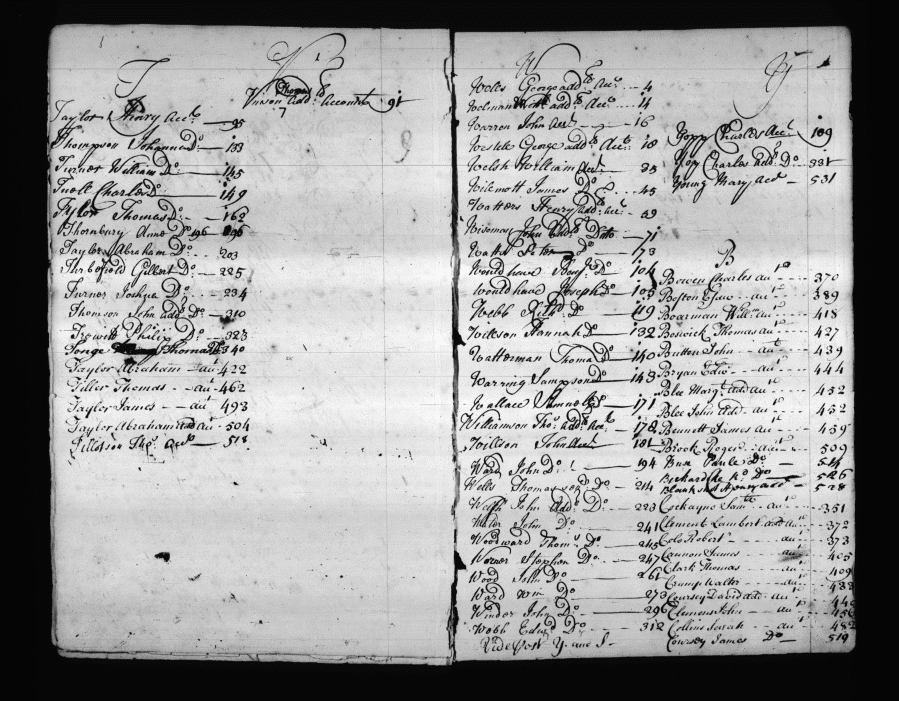 T
Taylor Henry Acct 95
Thompson Johanna Do 133
Turner William Do 145
Tuell Charles Do 149
Tylor Thomas Do 162
Thornbury Anne Do 196
Taylor Abraham Do 203
Turbofield Gilbert Do 225
Turner Joshua Do 234
Thomson John add Do 310
Philip Do 323
Tonge Thomas 340
Taylor Abraham aut 422
Tiller Thomas aut 462
Taylor James aut 493
Taylor Abraham add au 504
Tillotson 518
V
Thomas
Vinson add Accounts 91
7
W
Welles George add Acct 4
add Acct 14
Warren John Acct 16
George add Acct 18
Welsh William Acct 35
Wilmott James Do 45
Watters Henry add Acct 59
John add Ditto 71
Watts Peter Do 73
Benj Do 104
Joseph Do 105
Webb Do 119
Wilkson Hannah Do 132
Watterman Thomas Do 140
Warring Sampson Do 143
Wallace 171
Williamson Tho add Acct 178
Willson John Acct 181
Ward John Do 194
Wells Thomas Do 214
Welsh John add Do 223
John Do 241
Woodward Thoms Do 245
Worner Stephen Do 247
Wood John Do 261
Ward Wm Do 273
Winder John Do 296
Webb Edwd Do 312
Y
Yopp Charles Acct 109
Yopp Charles add Do 331
Young Mary Acct 531
B
Bowen Charles aut 370
Boston aut 389
Boarman Willm aut 418
Beswick Thomas aut 427
Button John aut 439
Bryan Edw aut 444
Blee Margt add aut 452
Blee John add aut 452
Bennett James au 459
Brook Roger aut 509
Do 514
Do 526
Henry add 528
Cockayne Saml 351
Clement Lambert add au 372
Cole Robert aut 373
Cannon James aut 405
Clark Thomas aut 409
Crump Walter aut 438
Coursey David add aut
Clemens John aut 456
Collins Sarah aut 482
Coursey James Do 519